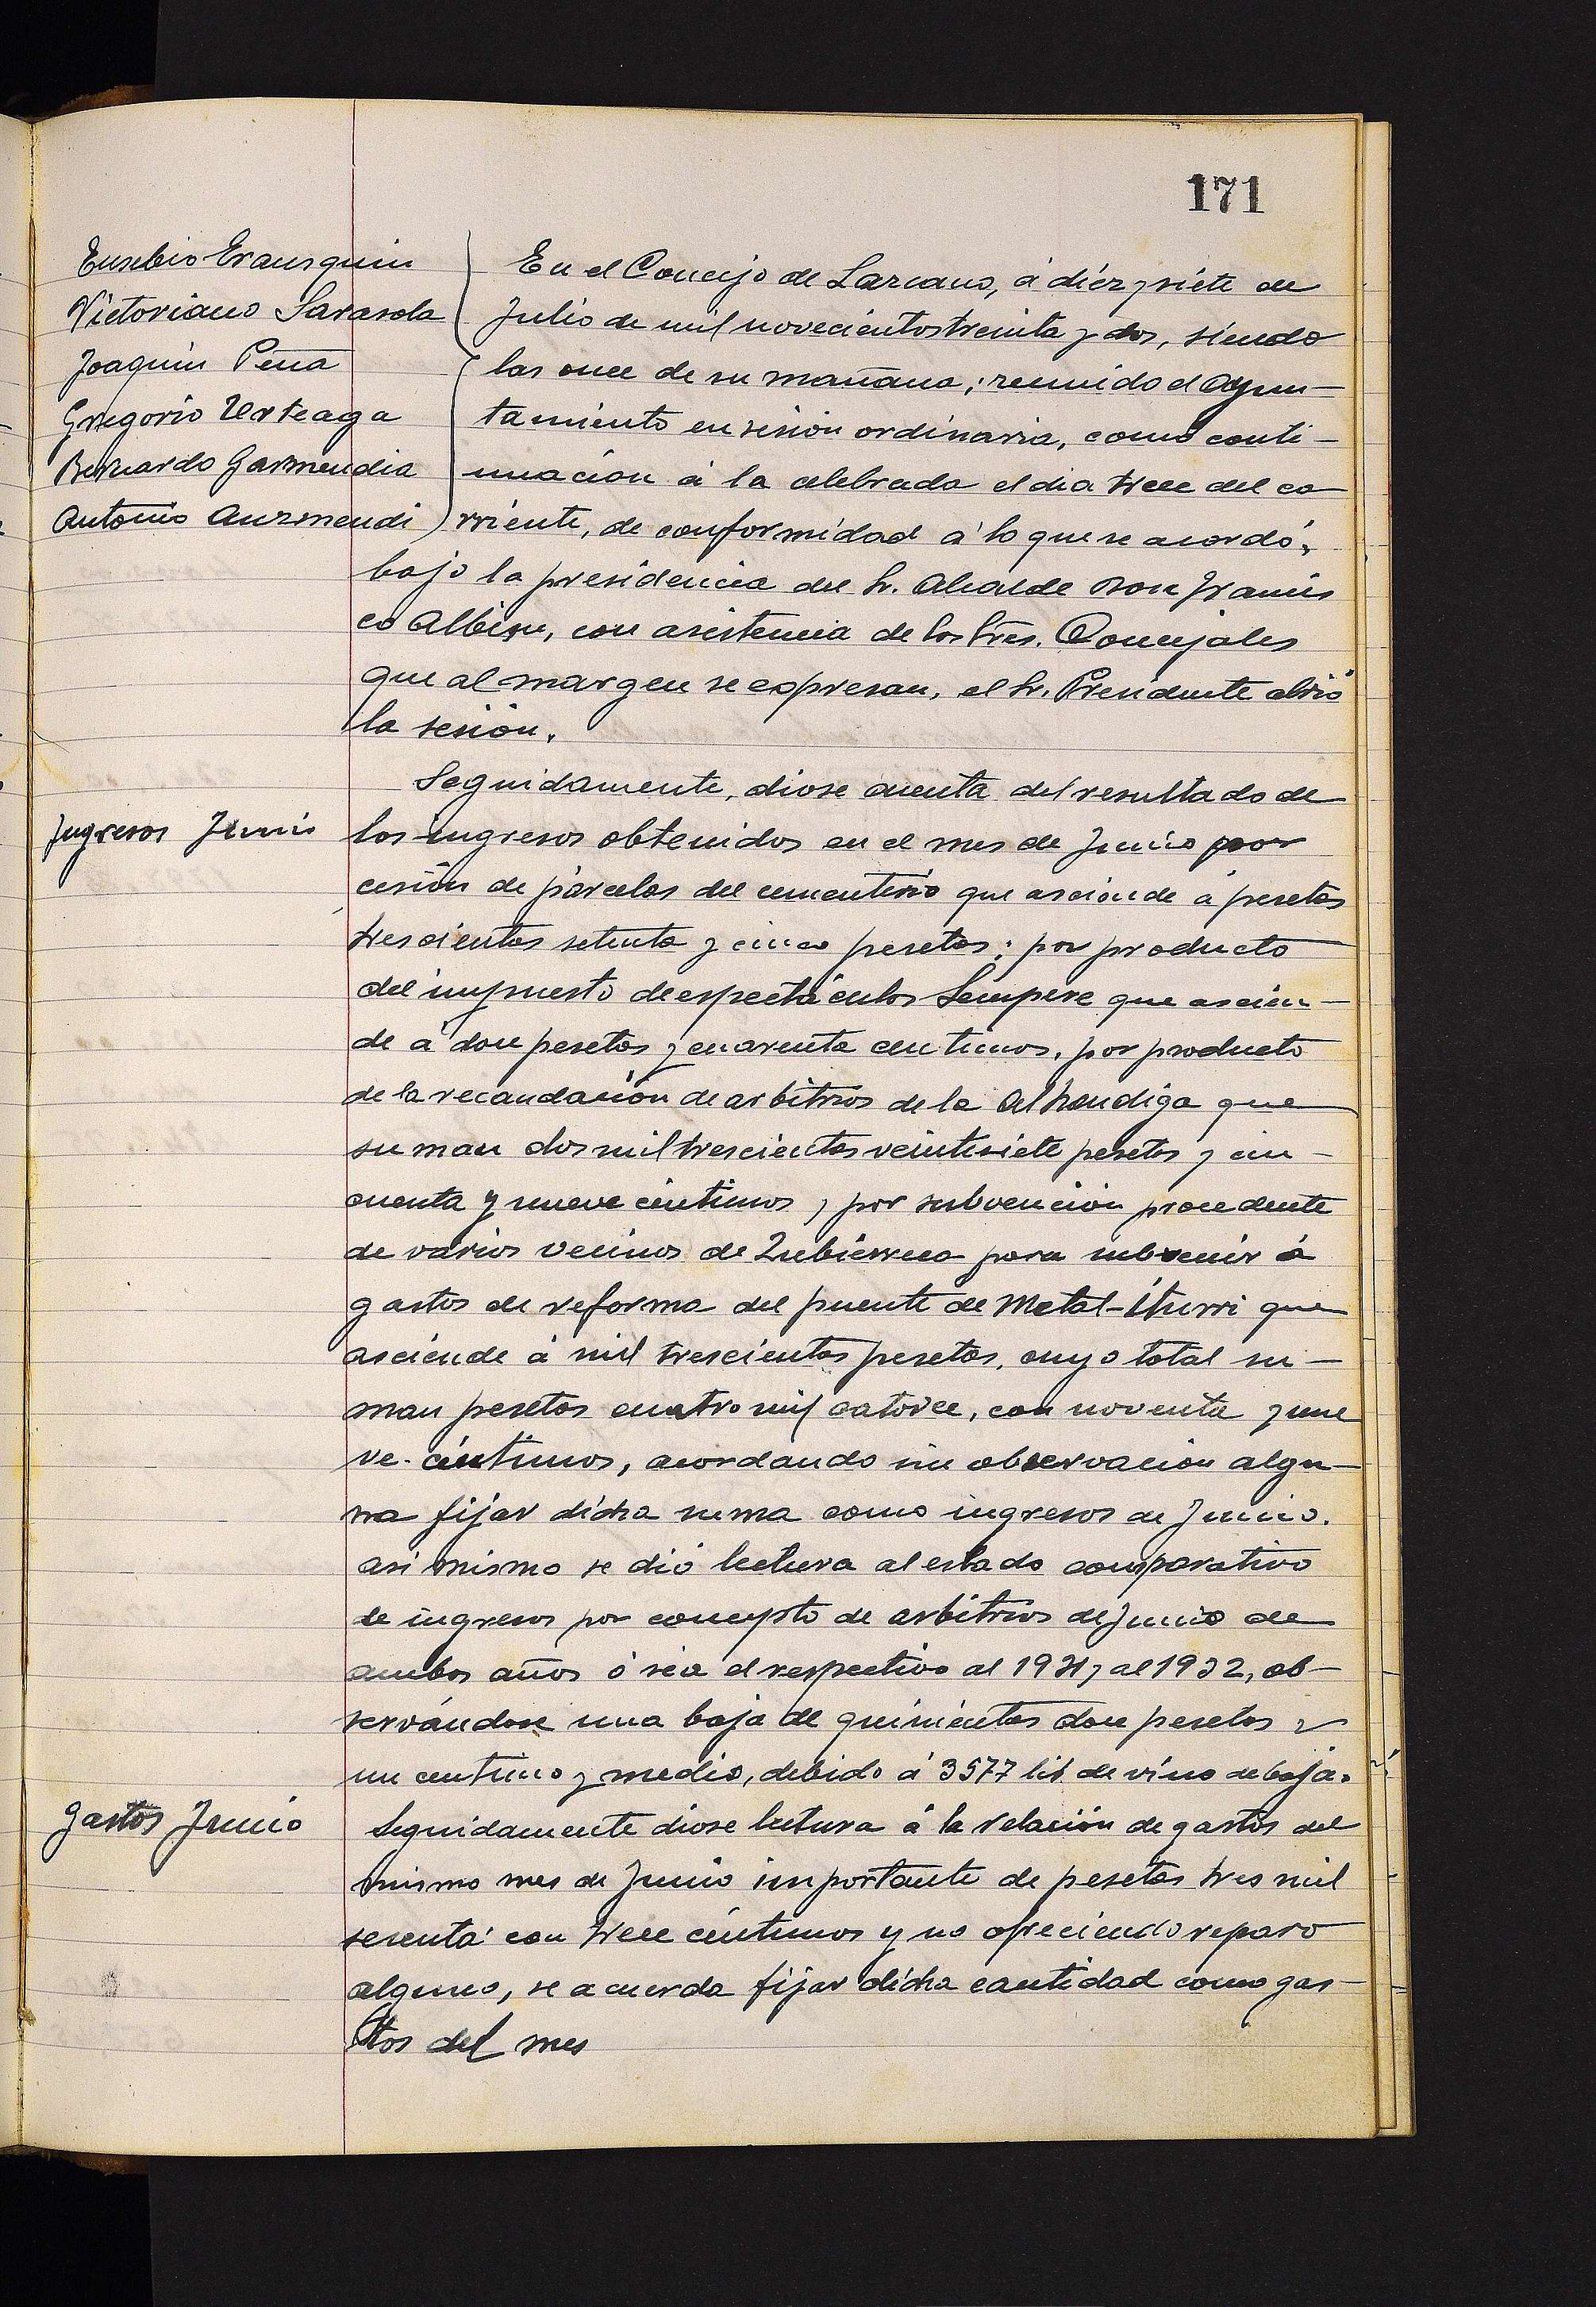 171
Eusebio Erausquin
Victoriano Sarasola
Joaquin Peña
Gregorio Urteaga
Bernardo Garmendia
Antonio Auzmendi
En el Concejo de Lazcano, á diéz y siéte de
Julio de mil novecientos treinta y dos, siendo
las once de su mañana; reunido el Ayun-
tamiento en sesión ordinaria, como conti-
nuación á la celebrada el dia trece del co
rriente, de conformidad á lo que se acordó,
bajo la presidencia del Sr. Alcalde Don Francis
co Albisu, con asistencia de los Sres. Concejales
que al margen se expresan, el Sr. Presidente abrió
la sesión.
Seguidamente, diose cuenta del resultado de
Ingresos Junio
los ingresos obtenidos en el mes de Junio por
cesión de parcelas del cementerio que asciende á pesetas
trescientas setenta y cinco pesetas; por producto
del impuesto de espectáculos Sempere que ascien-
de á doce pesetas y cuarenta centimos, por producto
de la recaudación de arbitrios de la Alhondiga que
suman dos mil trescientas veintisiete pesetas y cin-
cuenta y nueve céntimos, por subvención procedente
de varios vecinos de Zubierreca para subvenir á
gastos de reforma del puente de Metal-Iturri que
asciende á mil trescientas pesetas, cuyo total su-
man pesetas cuatro mil catorce, con noventa y nue
ve céntimos, acordando sin observación algu-
na fijar dicha suma como ingresos de Junio.
asi mismo se dió lectura al estado comparativo
de ingresos por concepto de arbitrios de Junio de
ambos años ó sea el respectivo al 1931 y al 1932, ob-
servándose una baja de quinientas doce pesetas y
un centimo y medio, debido á 3577 lit. de vino de baja.
Gastos Junio
Seguidamente diose lectura á la relación de gastos del
mismo mes de Junio importante de pesetas tres mil
sesenta con trece céntimos y no ofreciendo reparo
alguno, se acuerda fijar dicha cantidad como gas-
tos del mes